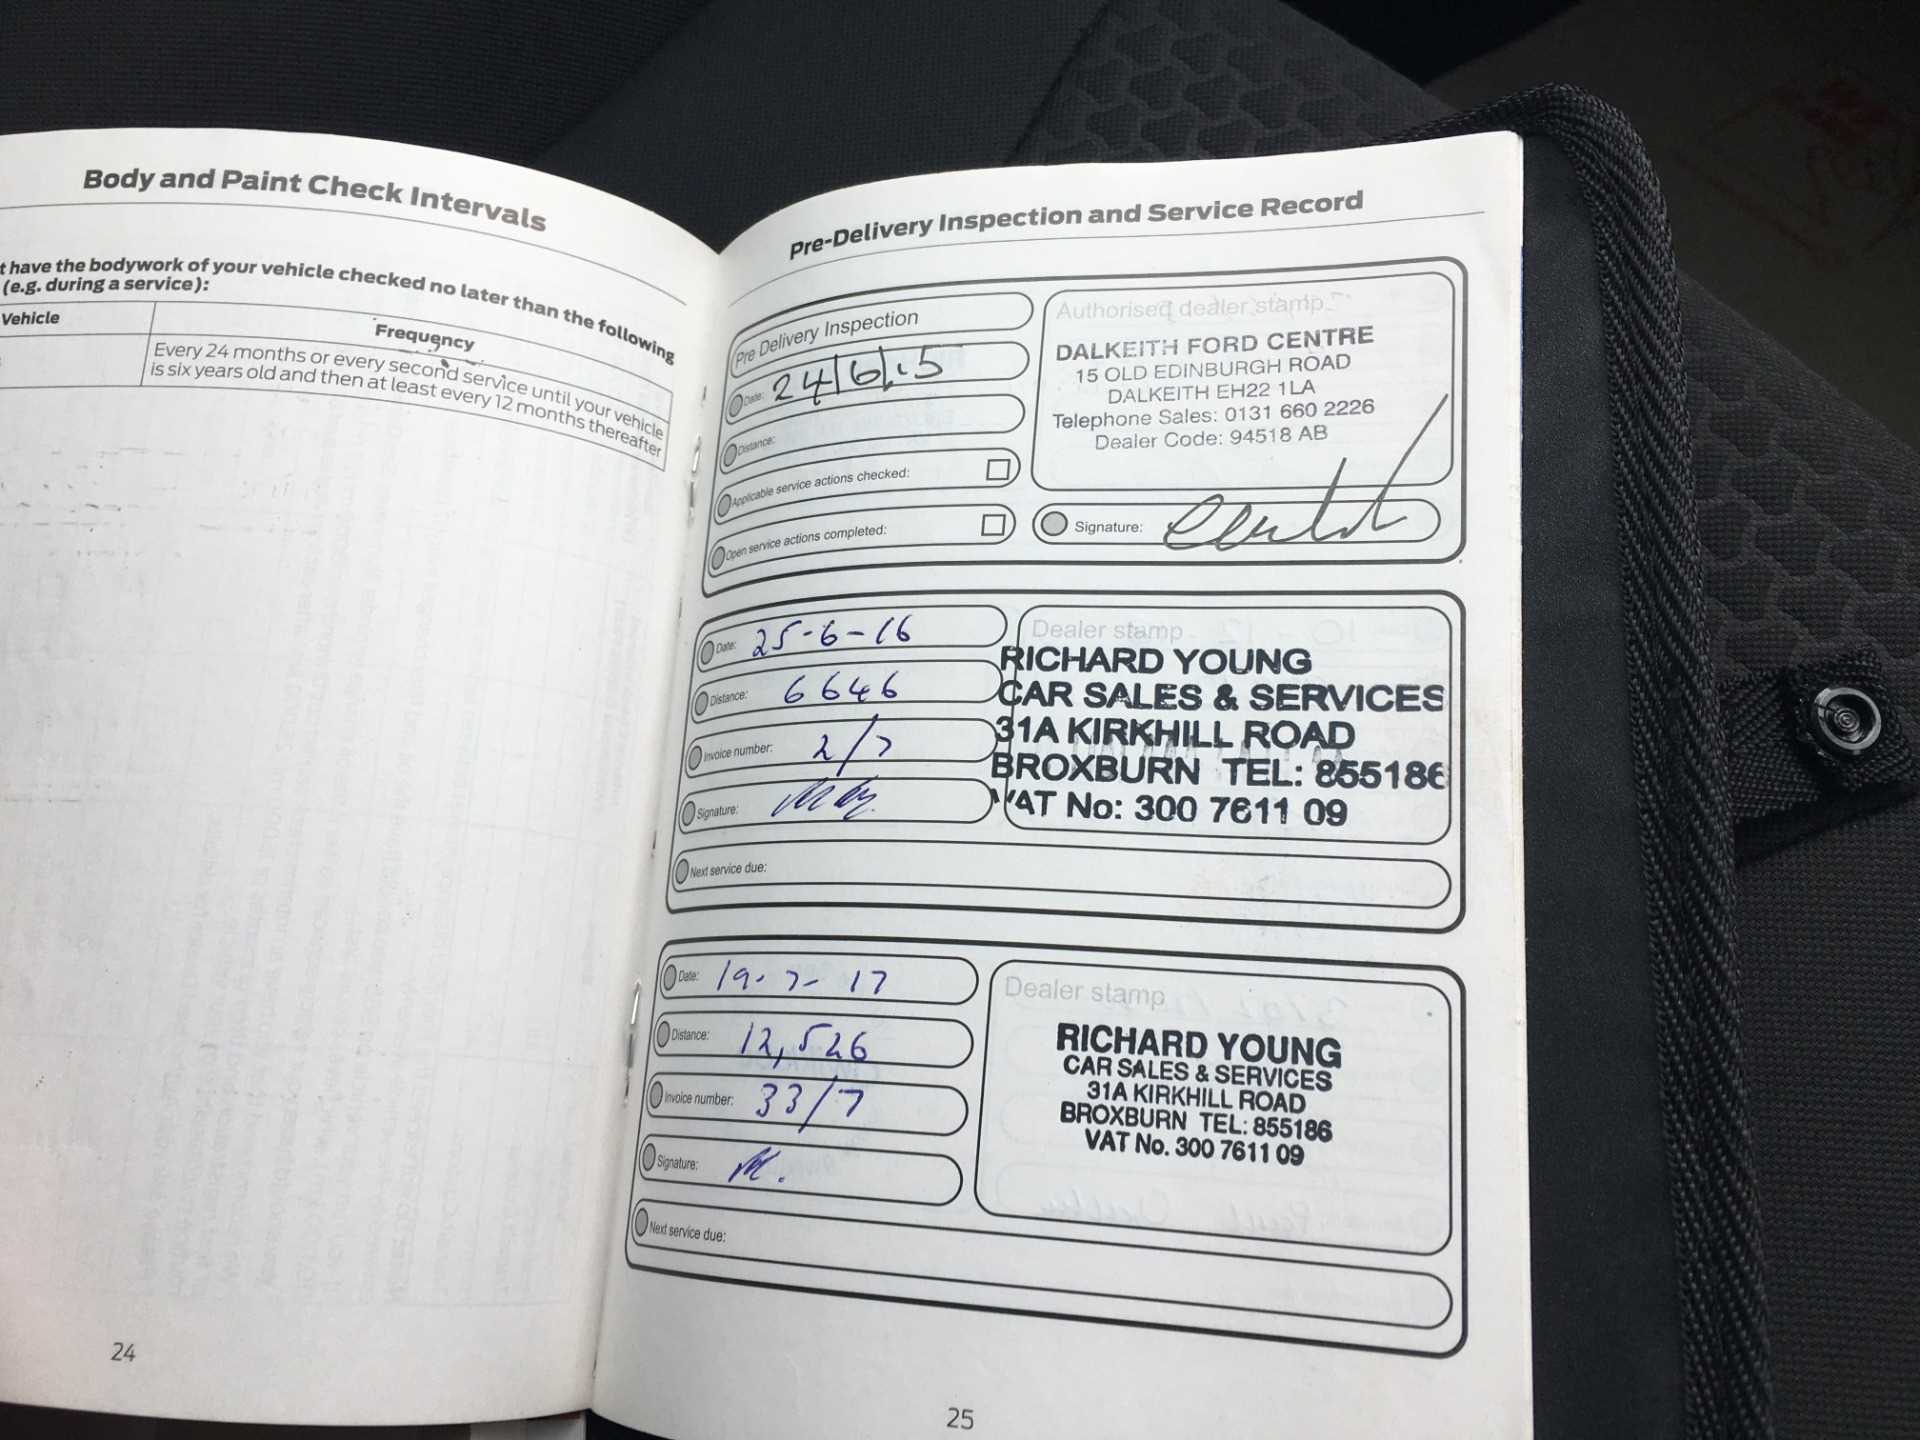 Body and Paint Check Intervals
t have the bodywork of your vehicle checked no later than the following
(e.g. during a service):
Vehicle
Frequency
Every 24 months or every second service until your vehicle
is six years old and then at least every 12 months thereafter
24
Pre-Delivery Inspection and Service Record
Pre Delivery Inspection
Date: 24/6/15
Distance:
Applicable service actions checked:
Open service actions completed:
Authorised dealer stamp
DALKEITH FORD CENTRE
15 OLD EDINBURGH ROAD
DALKEITH EH22 1LA
Telephone Sales: 0131 660 2226
Dealer Code: 94518 AB
Signature:
Date: 25-6-16
Distance: 6646
Invoice number: 2/7
Signature:
Next service due:
Dealer stamp
RICHARD YOUNG
CAR SALES & SERVICES
31A KIRKHILL ROAD
BROXBURN TEL: 855186
VAT No: 300 7611 09
Date: 19-7-17
Distance: 12,526
Invoice number: 33/7
Signature:
Next service due:
Dealer stamp
RICHARD YOUNG
CAR SALES & SERVICES
31A KIRKHILL ROAD
BROXBURN TEL: 855186
VAT No. 300 7611 09
25